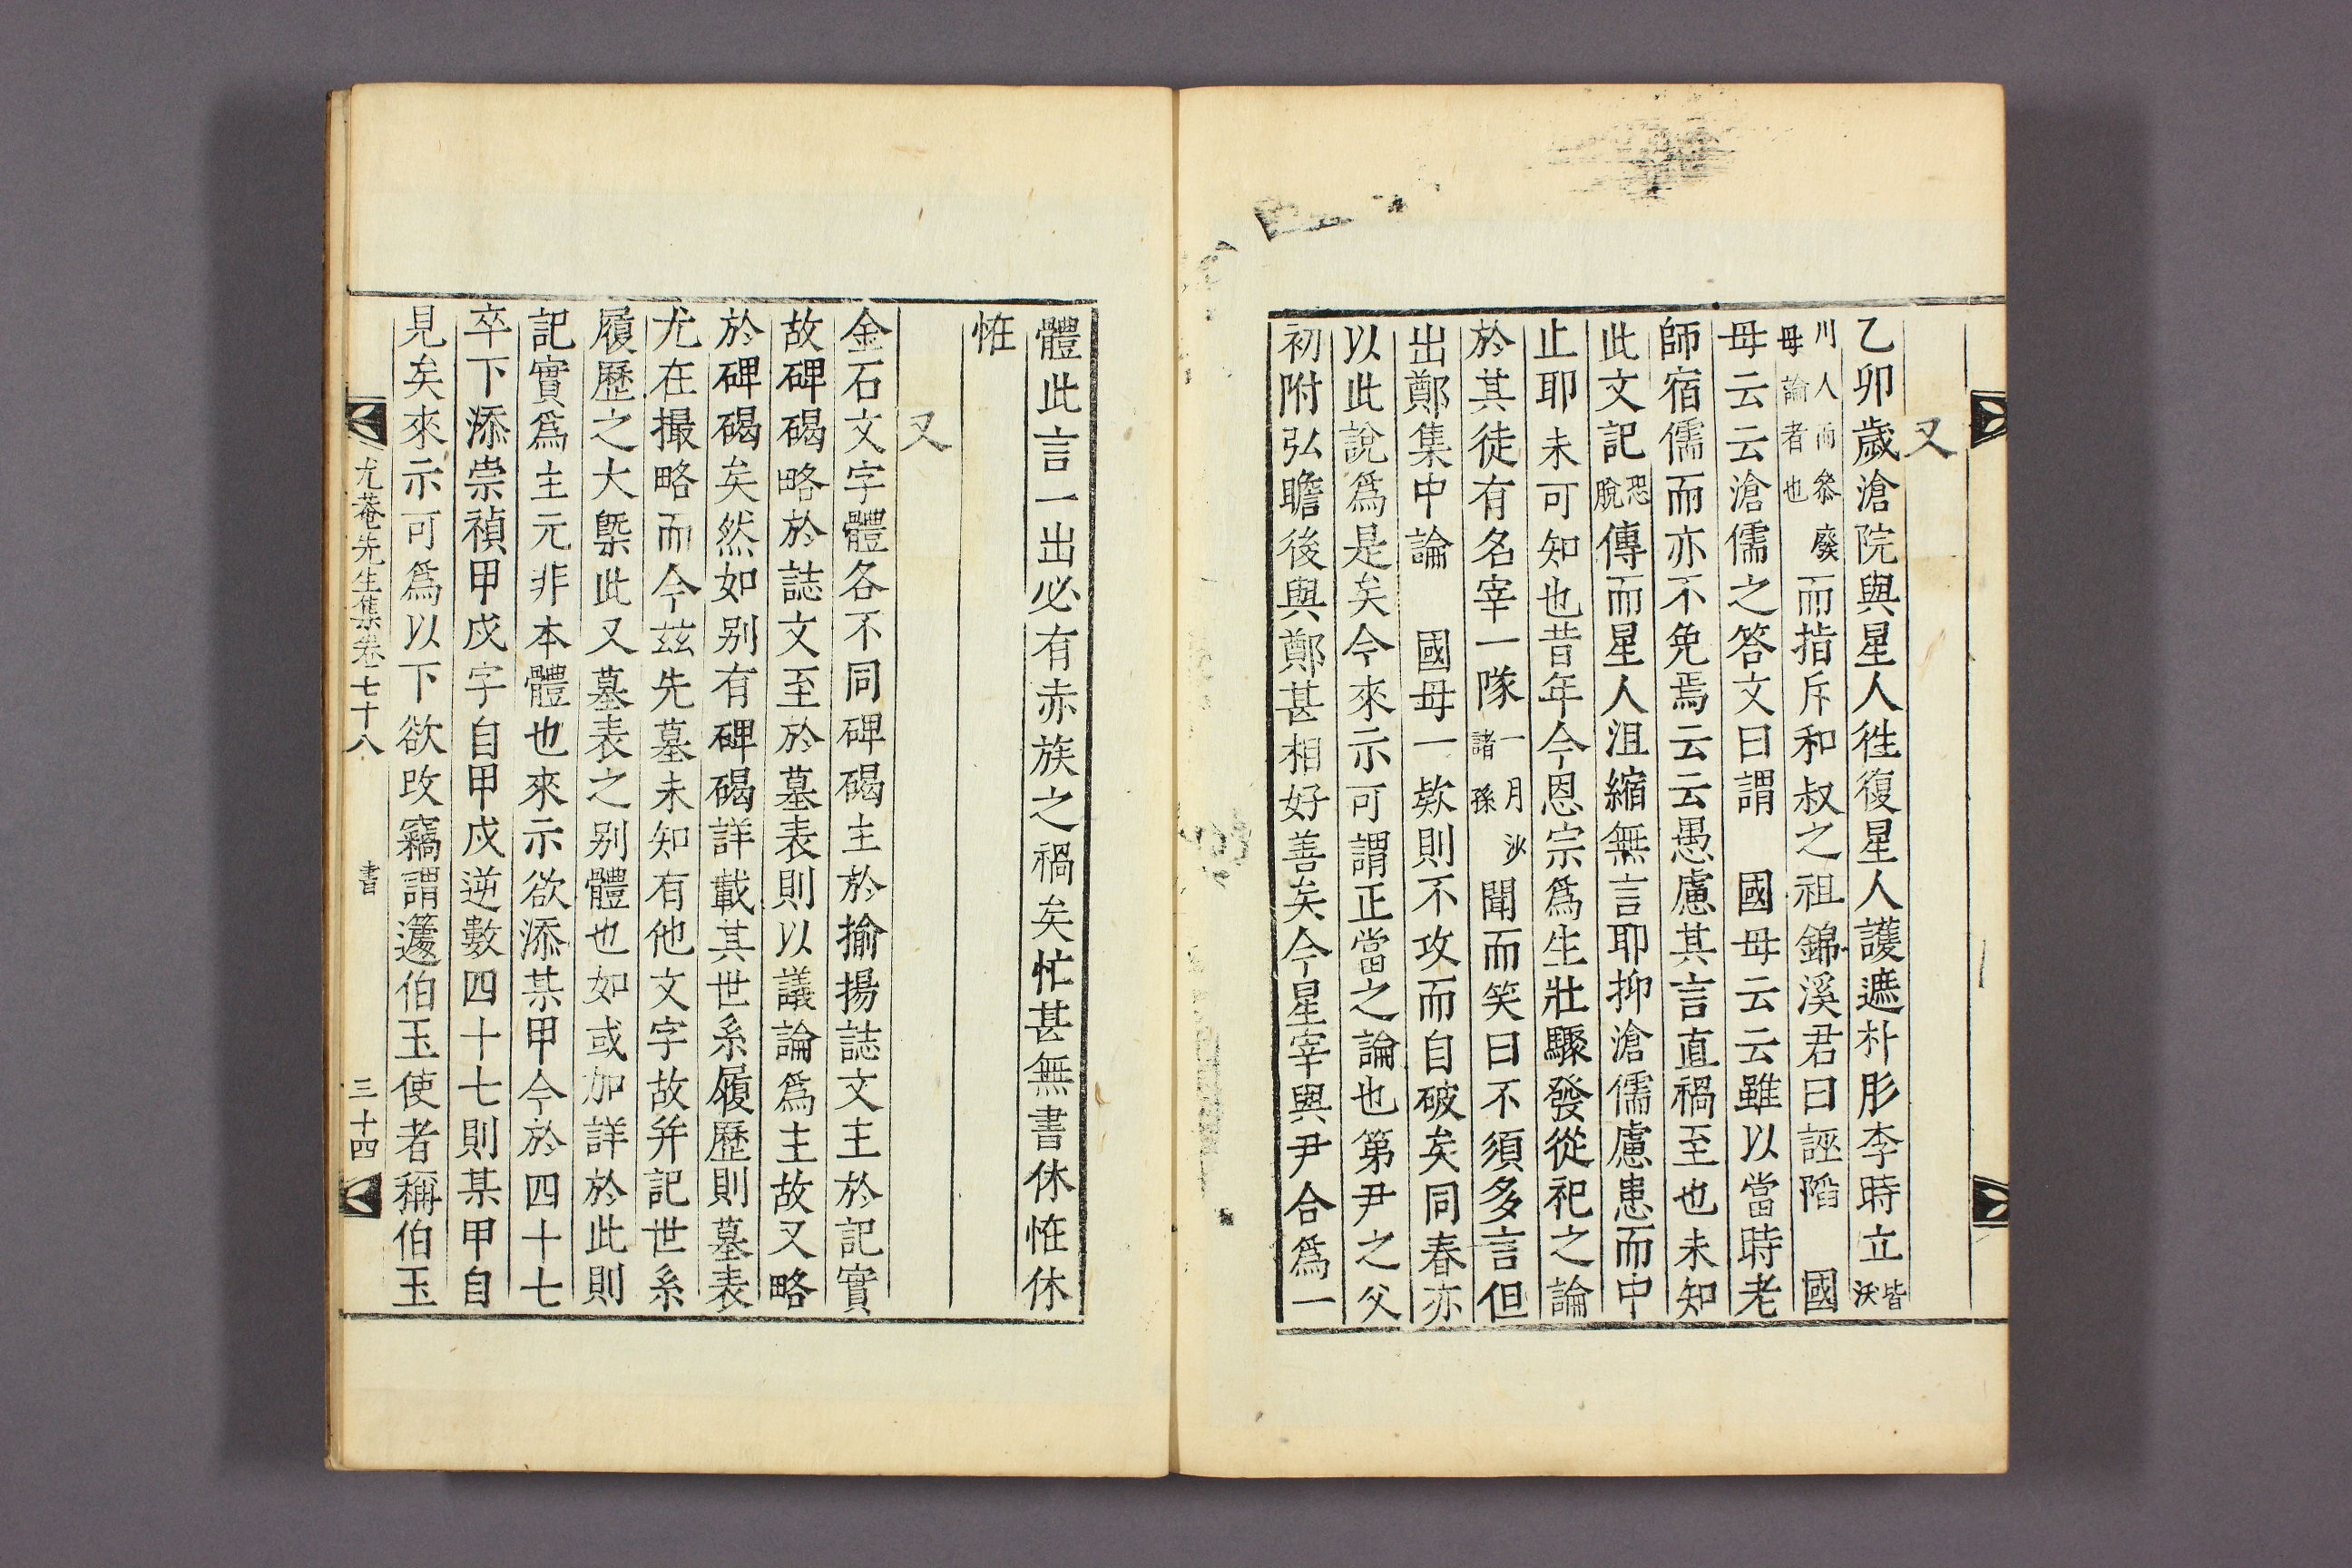 又
乙卯歲滄院與星人徃復星人護遮朴肜李時立皆沃
川人而叅廢母論者也而指斥和叔之祖錦溪君曰誣陷　國
母云云滄儒之答文曰謂　國母云云雖以當時老
師宿儒而亦不免焉云云愚慮其言直禍至也未知
此文記恐脫傳而星人沮縮無言耶抑滄儒慮患而中
止耶未可知也昔年今恩宗爲生壯驟發從祀之論
於其徒有名宰一隊一月沙諸孫聞而笑曰不須多言但
出鄭集中論　國母一欵則不攻而自破矣同春亦
以此說爲是矣今來示可謂正當之論也第尹之父
初附弘瞻後與鄭甚相好善矣今星宰與尹合爲一
體此言一出必有赤族之禍矣忙甚無書休恠休
恠
又
金石文字體各不同碑碣主於揄揚誌文主於記實
故碑碣略於誌文至於墓表則以議論爲主故又略
於碑碣矣然如别有碑碣詳載其世系履歷則墓表
尤在撮略而今玆先墓未知有他文字故并記世系
履歷之大槩此又墓表之别體也如或加詳於此則
記實爲主元非本體也來示欲添某甲今於四十七
卒下添崇禎甲戌字自甲戌逆數四十七則某甲自
見矣來示可爲以下欲改竊謂蘧伯玉使者稱伯玉
尤菴先生集卷七十八　書　三十四